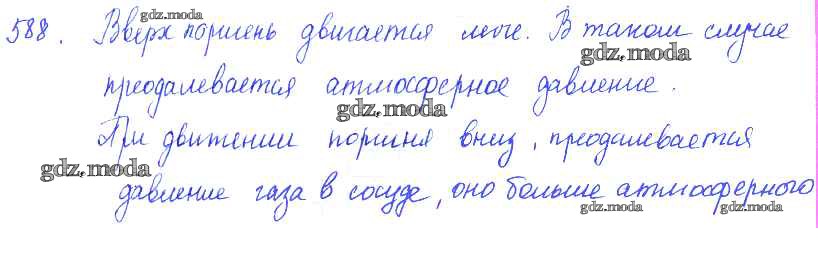 588. Вверх поршень двигается легче. В таком случае
преодалевается атмосферное давление.
При движении поршня вниз, преодалевается
давление газа в сосуде, оно больше атмосферного
gdz.moda
gdz.moda
gdz.moda
gdz.moda
gdz.moda
gdz.moda